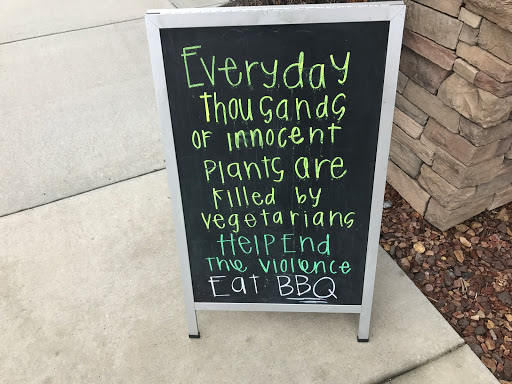 Everyday
thousands
of innocent
plants are
killed by
vegetarians
Help End
The violence
Eat BBQ